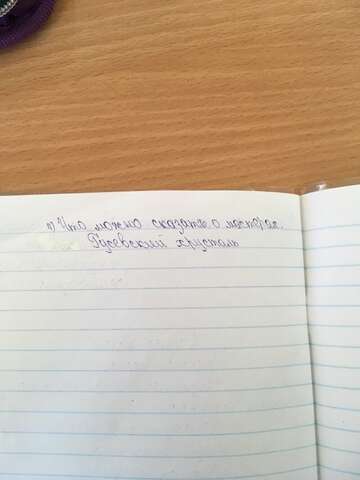 1) Что можно сказать о мастерах.
Гусевский хрусталь